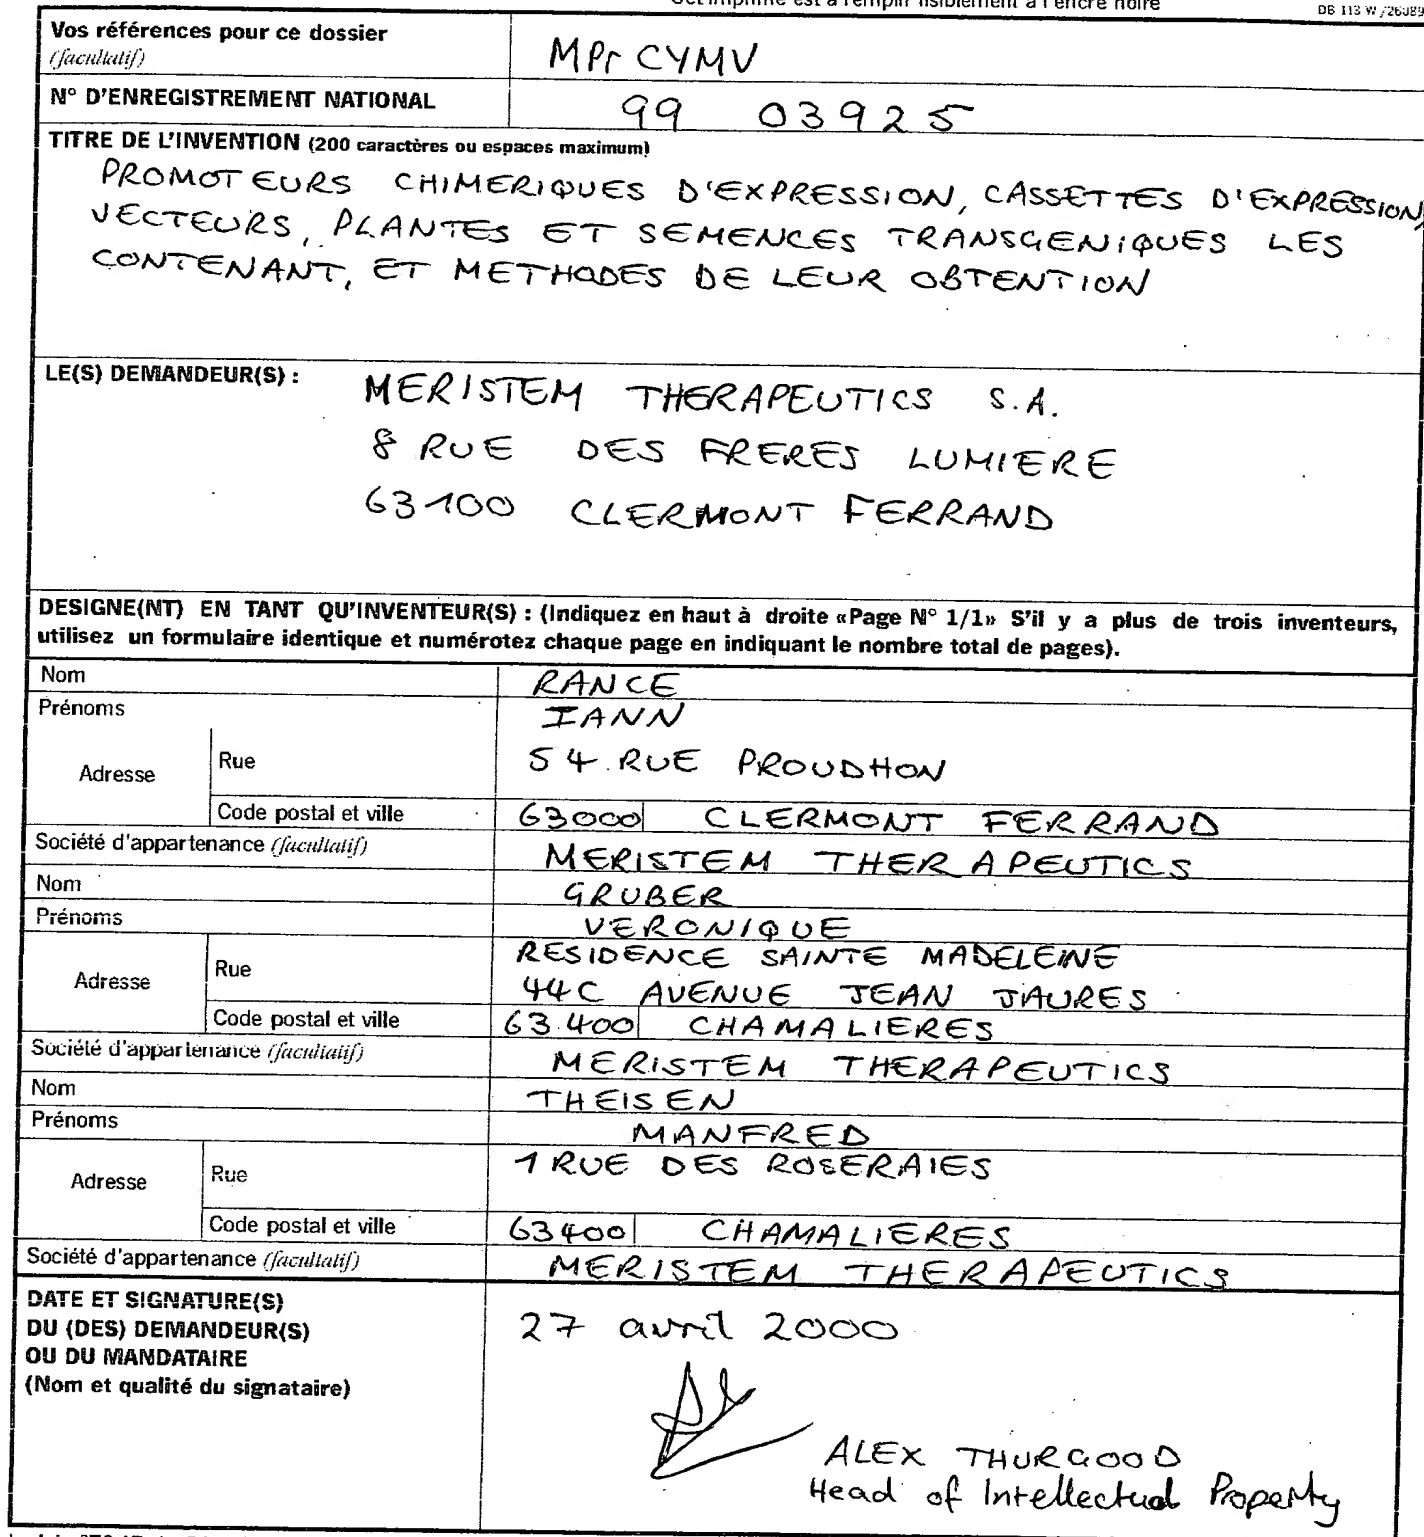 est à remplir lisiblement à l'encre noire
DB 113 W /260899
Vos références pour ce dossier
(facultatif)
MPr CYMV
N° D'ENREGISTREMENT NATIONAL
99 03925
TITRE DE L'INVENTION (200 caractères ou espaces maximum)
PROMOTEURS CHIMERIQUES D'EXPRESSION, CASSETTES D'EXPRESSION,
VECTEURS, PLANTES ET SEMENCES TRANSGENIQUES LES
CONTENANT, ET METHODES DE LEUR OBTENTION
LE(S) DEMANDEUR(S) :
MERISTEM THERAPEUTICS S.A.
8 RUE DES FRERES LUMIERE
63100 CLERMONT FERRAND
DESIGNE(NT) EN TANT QU'INVENTEUR(S) : (Indiquez en haut à droite «Page N° 1/1» S'il y a plus de trois inventeurs,
utilisez un formulaire identique et numérotez chaque page en indiquant le nombre total de pages).
Nom
RANCE
Prénoms
IANN
Adresse
Rue
54 RUE PROUDHON
Code postal et ville
63000 CLERMONT FERRAND
Société d'appartenance (facultatif)
MERISTEM THERAPEUTICS
Nom
GRUBER
Prénoms
VERONIQUE
Adresse
Rue
RESIDENCE SAINTE MADELEINE
44C AVENUE JEAN JAURES
Code postal et ville
63.400 CHAMALIERES
Société d'appartenance (facultatif)
MERISTEM THERAPEUTICS
Nom
THEISEN
Prénoms
MANFRED
Adresse
Rue
1 RUE DES ROSERAIES
Code postal et ville
63400 CHAMALIERES
Société d'appartenance (facultatif)
MERISTEM THERAPEUTICS
DATE ET SIGNATURE(S)
DU (DES) DEMANDEUR(S)
OU DU MANDATAIRE
(Nom et qualité du signataire)
27 avril 2000
ALEX THURGOOD
Head of Intellectual Property